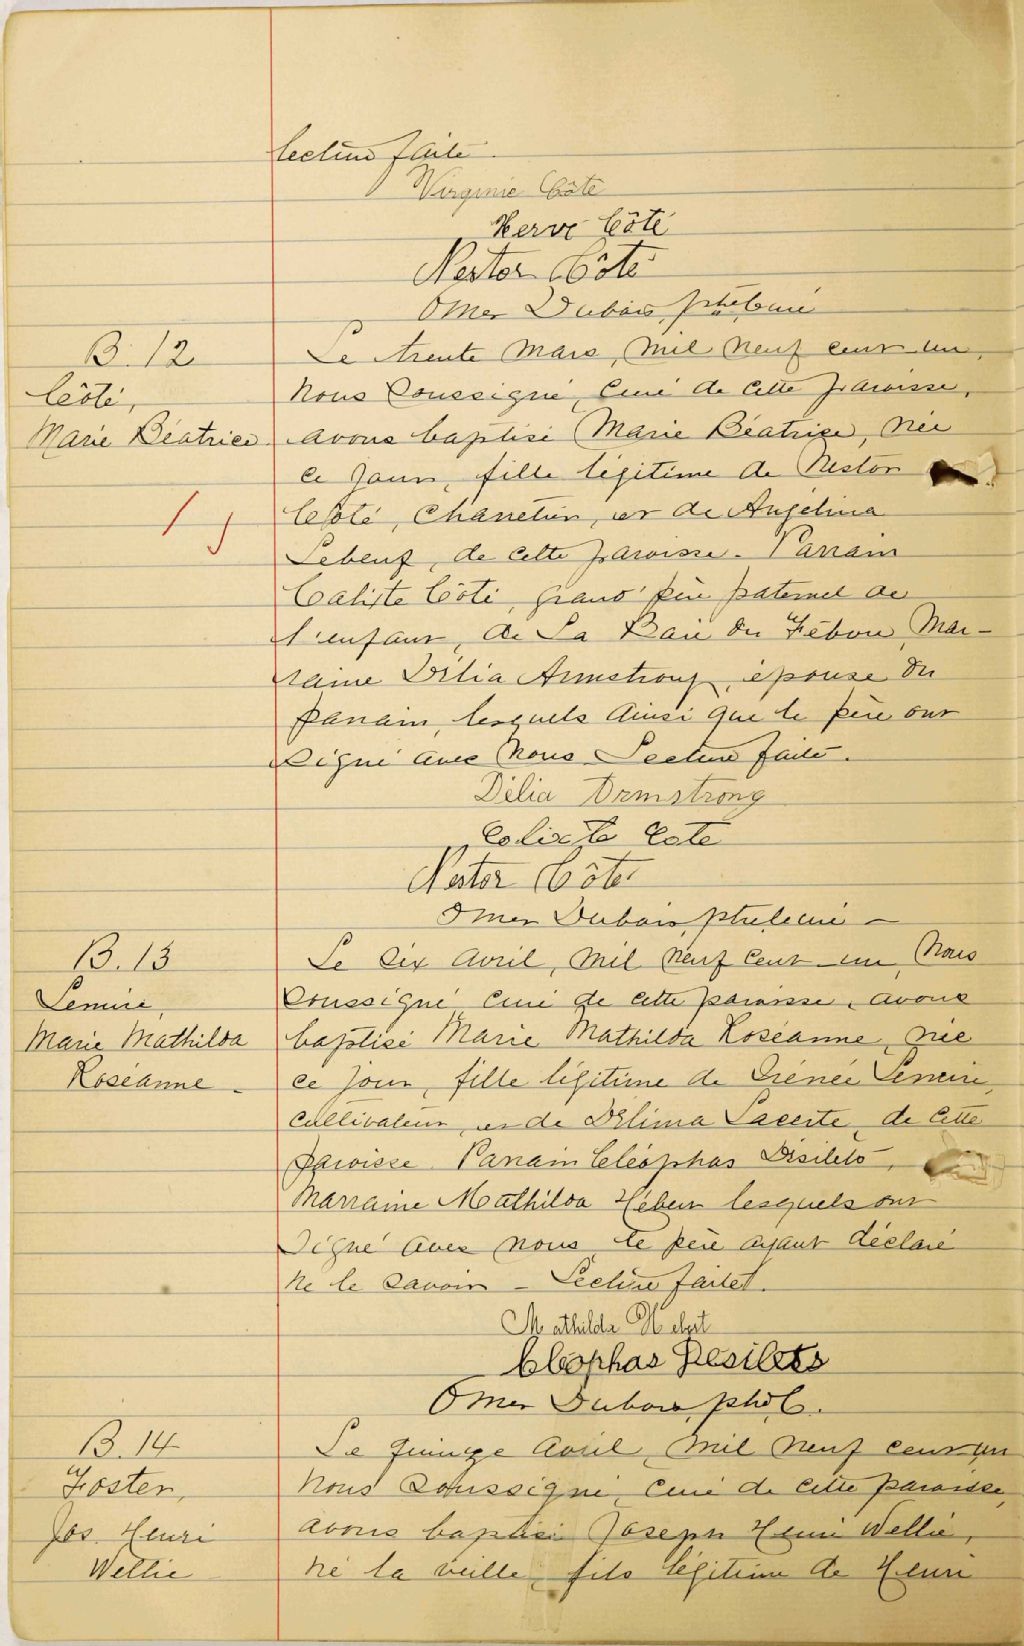 Lecture faite.
Virginie Côté
Hervé Côté
Nestor Côté
Omer Dubois, ptre curé
B. 12
Côté,
Marie Béatrice
Le trente mars, mil neuf cent un,
nous soussigné, curé de cette paroisse,
avons baptisé Marie Béatrice, née
ce jour, fille légitime de Nestor
Côté, charretier, et de Angélina
Lebeuf, de cette paroisse. Parrain
Calixte Côté, grand'père paternel de
l'enfant, de La Baie du Febvre, Mar-
raine Délia Armstrong, épouse du
parrain, lesquels ainsi que le père ont
signé avec nous. Lecture faite.
Délia Armstrong
Calixte Cote
Nestor Côté
Omer Dubois, ptre curé -
B. 13
Lemire,
Marie Mathilda
Roséanne -
Le six avril, mil neuf cent un, nous
soussigné curé de cette paroisse, avons
baptisé Marie Mathilda Roséanne, née
ce jour, fille légitime de Irénée Lemire,
cultivateur, et de Délima Lacerte, de cette
paroisse. Parrain Cléophas Désilets,
Marraine Mathilda Hébert lesquels ont
signé avec nous, le père ayant déclaré
ne le savoir - Lecture faite.
Mathilda Hebert
Cléophas Désilets
Omer Dubois, ptre C.
B. 14
Foster,
Jos. Henri
Wellie
Le quinze avril, mil neuf cent un
nous soussigné, curé de cette paroisse,
avons baptisé Joseph Henri Wellie,
né la veille, fils légitime de Henri